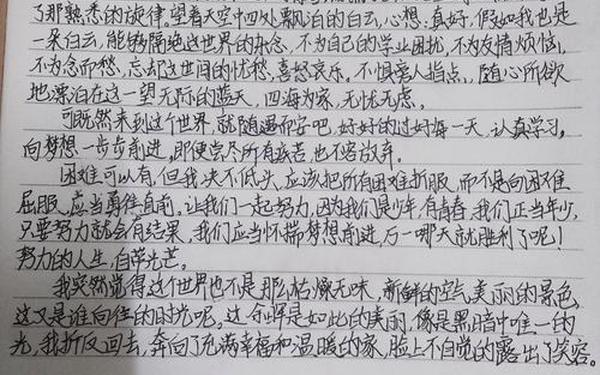 了那熟悉的旋律。望着天空中四处飘泊的白云,心想:真好,假如我也是
一朵白云,能够隔绝这世界的杂念,不为自己的学业困扰,不为友情烦恼,
不为念而愁,忘却这世间的忧愁,喜怒哀乐。不惧旁人指点,随心所欲
地漂泊在这一望无际的蓝天,四海为家,无忧无虑。
可既然来到这个世界,就随遇而安吧,好好的过好每一天,认真学习。
向梦想一步步前进,即使尝尽所有疾苦,也不容放弃。
困难可以有,但我决不低头,应该把所有困难折服,而不是向困难
屈服,应当勇往直前。让我们一起努力,因为我们是少年,有青春,我们正当年少,
只要努力就会有结果,我们应当怀揣梦想前进,万一哪天就胜利了呢!
努力的人生,自带光芒。
我突然觉得这个世界也不是那么枯燥无味,新鲜的空气,美丽的景色,
这又是谁向往的时光呢。这余晖是如此的美丽,像是黑暗中唯一的
光,我折反回去,奔向了充满幸福和温暖的家,脸上不自觉的露出了笑容。